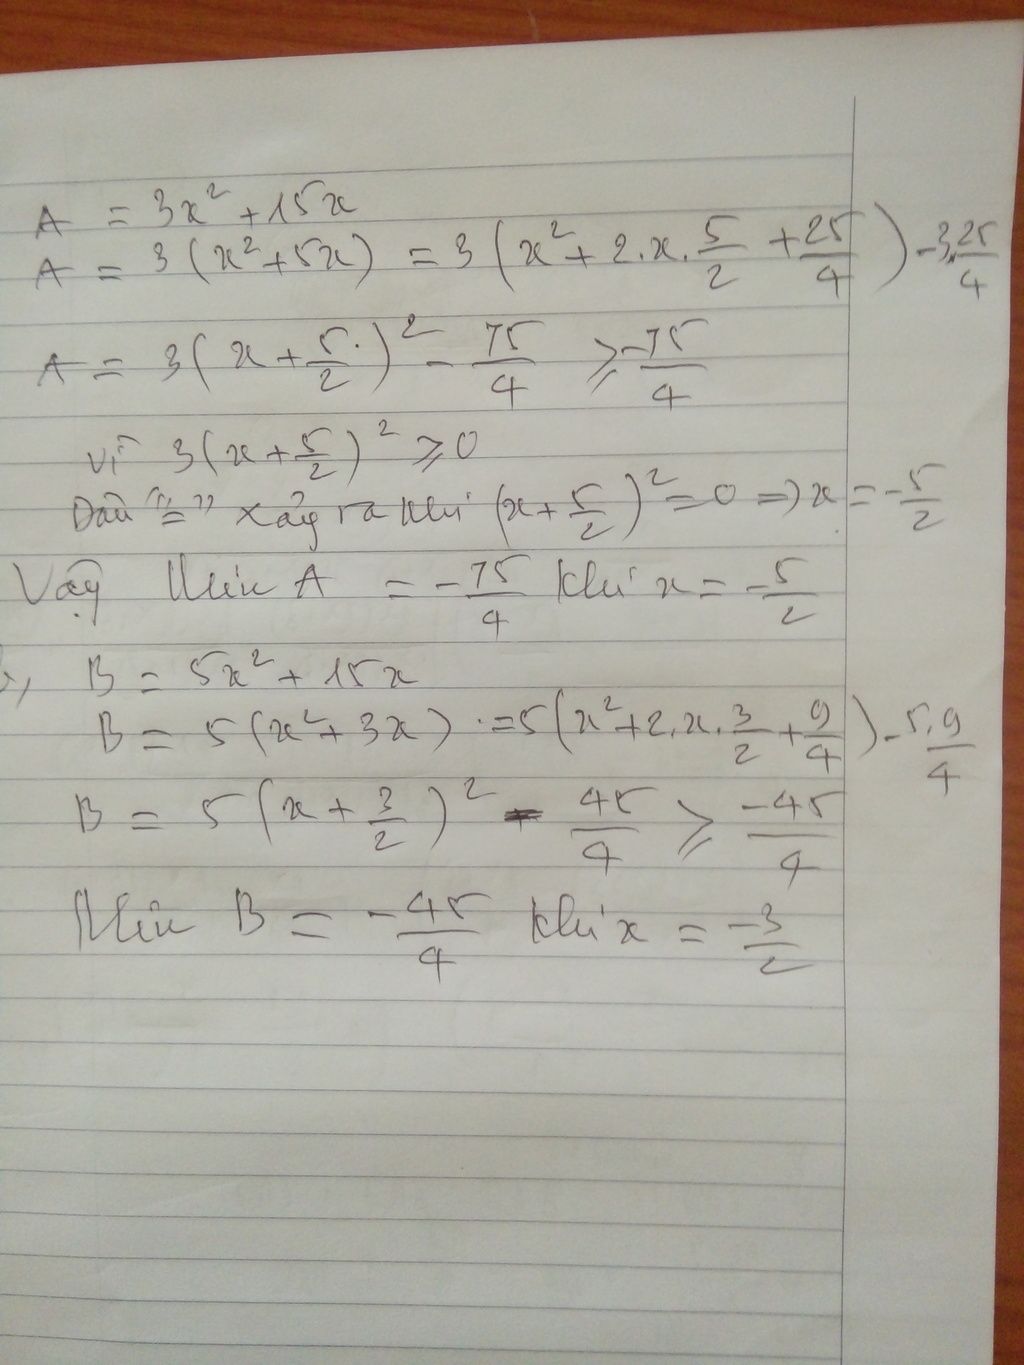 A = 3x² + 15x
A = 3(x² + 5x) = 3(x² + 2.x.5/2 + 25/4) - 3.25/4
A = 3(x + 5/2)² - 75/4 ≥ -75/4
Vì 3(x + 5/2)² ≥ 0
Dấu "=" xảy ra khi (x + 5/2)² = 0 => x = -5/2
Vậy Min A = -75/4 khi x = -5/2
b, B = 5x² + 15x
B = 5(x² + 3x) = 5(x² + 2.x.3/2 + 9/4) - 5.9/4
B = 5(x + 3/2)² - 45/4 ≥ -45/4
Min B = -45/4 khi x = -3/2